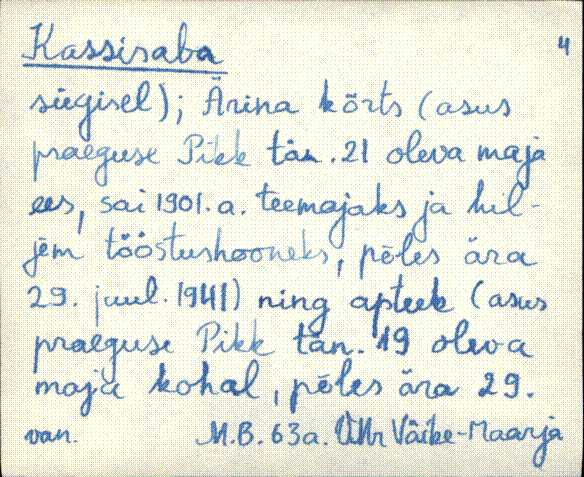 Kassisaba 4
sügisel); Ärina kõrts (asus
praeguse Pikk tän. 21 oleva maja
ees, sai 1901. a. teemajaks ja hil-
jem tööstushooneks, põles ära
29. juul. 1941) ning apteek (asus
praeguse Pikk tän. 19 oleva
maja kohal, põles ära 29.
van. M.B. 63a. Väike-Maarja